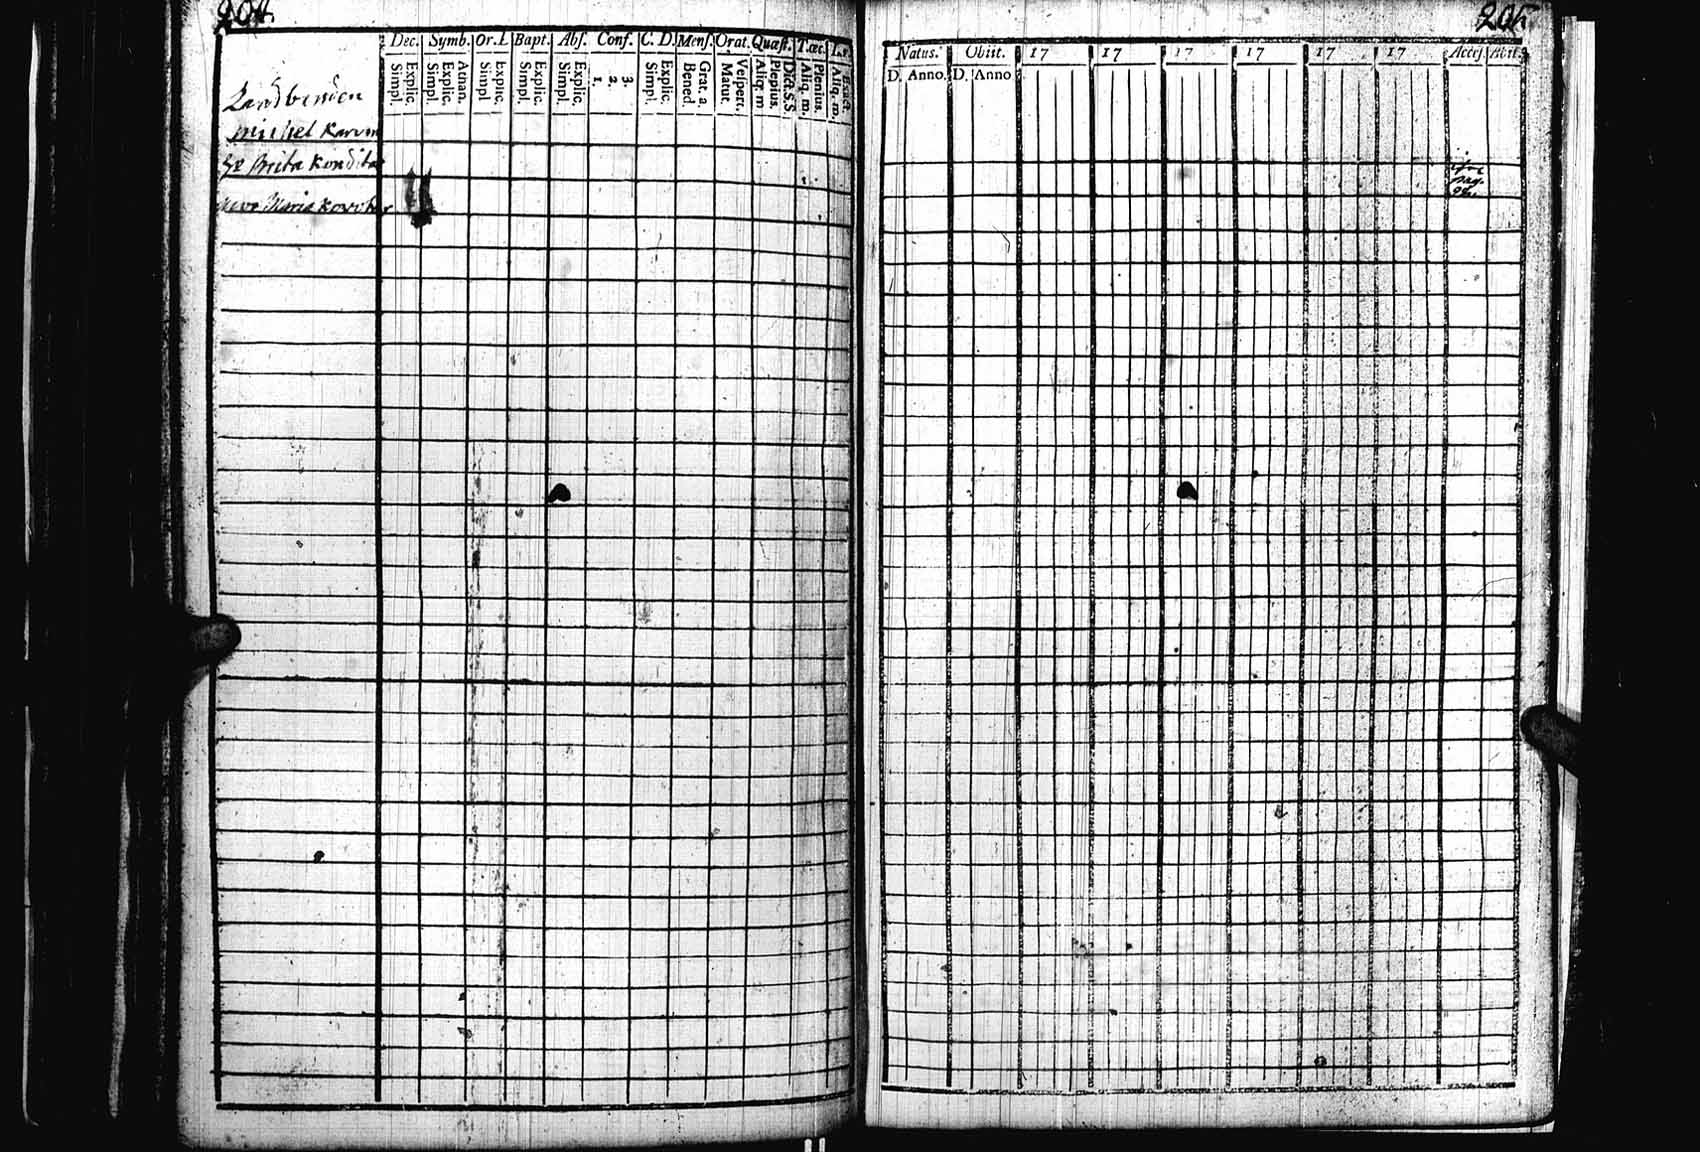 204.
Dec. Symb. Or. L Bapt. Abs. Conf. C. D. Mens. Orat. Quæst. T. œc.
Simpl. Explic, Simpl. Explic, Athan. Simpl Explic, Simpl. Explic, Simpl. Explic, 1. 2. 3. Simpl. Explic, Bened. Grat. a. Matut. Vespert. Aliq. m Plenius. Dict. S.S Aliq. m. Plenius. Aliq. m. Exact.
Landbonden
Michel Karvin
Hu Brita Kondita
Maria
205.
Natus. Obiit. 17 17 17 17 17 17 Access. Abiit.
D. Anno. D. Anno
pag.